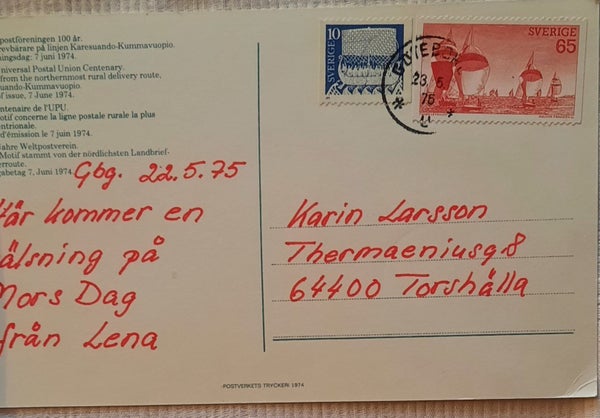 postföreningen 100 år.
revbärare på linjen Karesuando-Kummavuopio.
ningsdag: 7 juni 1974.
niversal Postal Union Centenary.
from the northernmost rural delivery route,
suando-Kummavuopio.
of issue, 7 June 1974.
entenaire de l'UPU.
Motif concerne la ligne postale rurale la plus
entrionale.
d'émission le 7 juin 1974.
Jahre Weltpostverein.
Motif stammt von der nördlichsten Landbrief-
erroute.
gabetag 7. Juni 1974.
Gbg. 22.5.75
Här kommer en
älsning på
Mors Dag
från Lena
SVERIGE 10
SVERIGE
65
23.5
75
Karin Larsson
Thermaeniusg.8
64400 Torshälla
POSTVERKETS TRYCKERI 1974